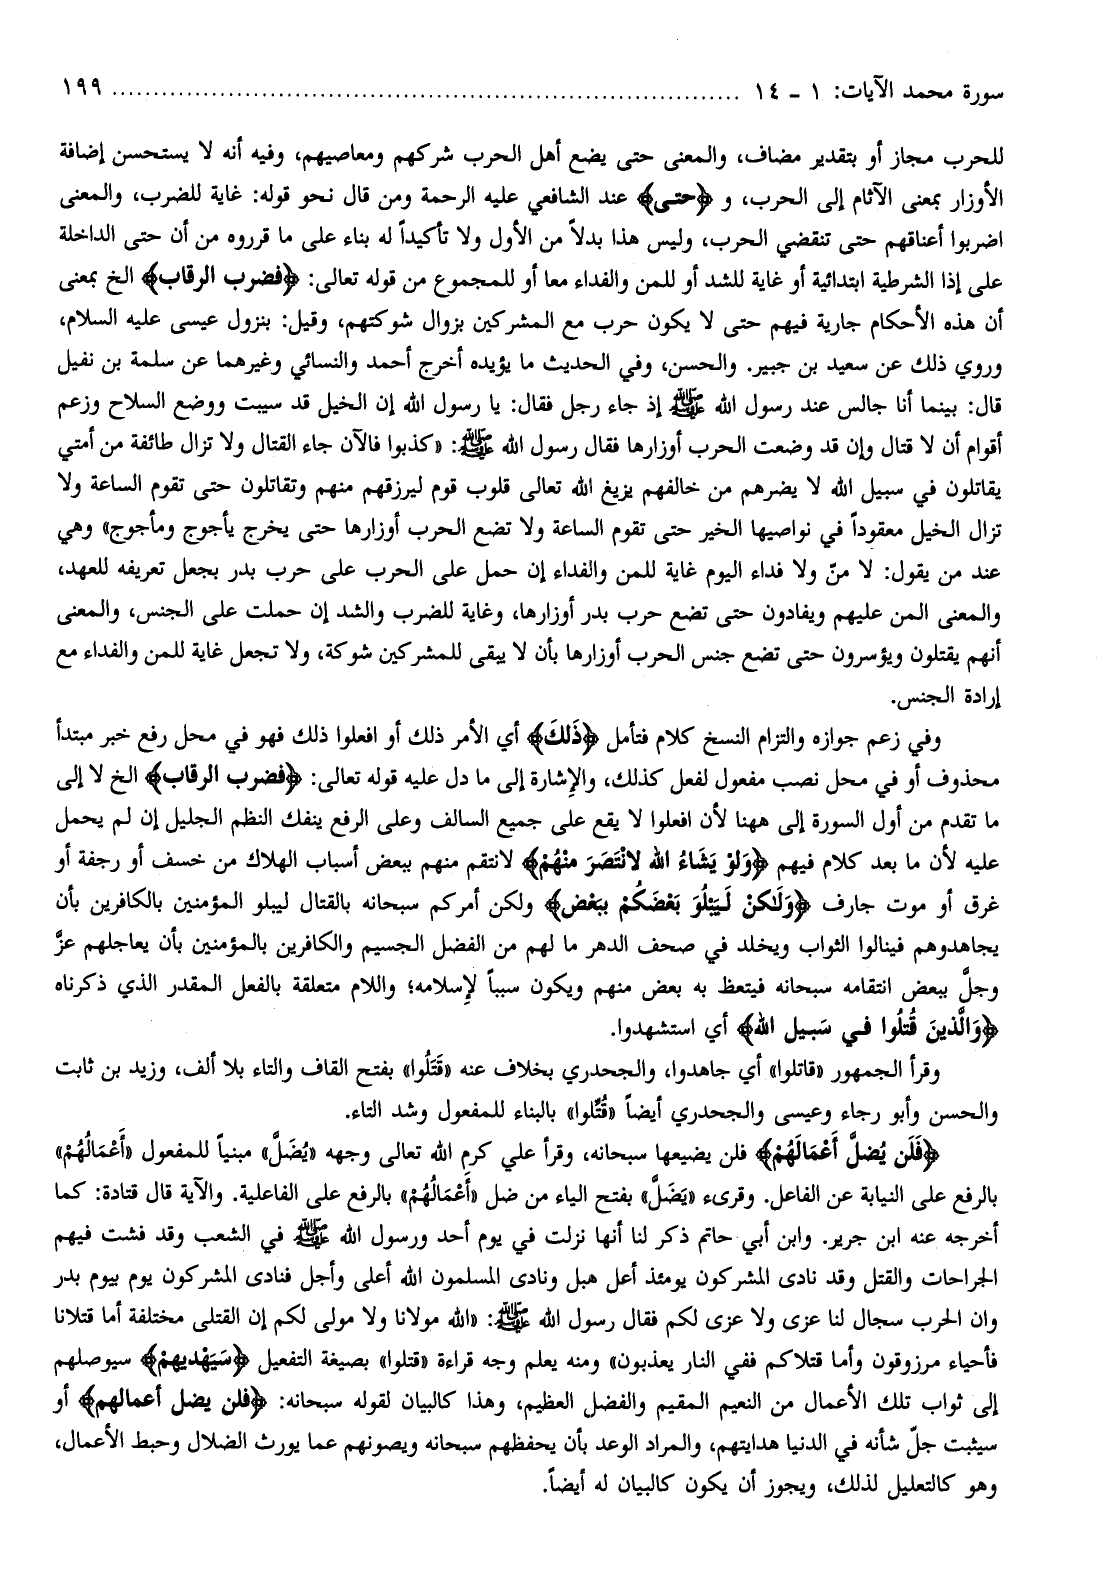 سورة محمد الآيات: ١ - ١٤ ........................................................................ ١٩٩
للحرب مجاز أو بتقدير مضاف، والمعنى حتى يضع أهل الحرب شركهم ومعاصيهم، وفيه أنه لا يستحسن إضافة
الأوزار بمعنى الآثام إلى الحرب، و ﴿حتى﴾ عند الشافعي عليه الرحمة ومن قال نحو قوله: غاية للضرب، والمعنى
اضربوا أعناقهم حتى تنقضي الحرب، وليس هذا بدلاً من الأول ولا تأكيداً له بناء على ما قرروه من أن حتى الداخلة
على إذا الشرطية ابتدائية أو غاية للشد أو للمن والفداء معا أو للمجموع من قوله تعالى: ﴿فضرب الرقاب﴾ الخ بمعنى
أن هذه الأحكام جارية فيهم حتى لا يكون حرب مع المشركين بزوال شوكتهم، وقيل: بنزول عيسى عليه السلام،
وروي ذلك عن سعيد بن جبير. والحسن، وفي الحديث ما يؤيده أخرج أحمد والنسائي وغيرهما عن سلمة بن نفيل
قال: بينما أنا جالس عند رسول الله ﷺ إذ جاء رجل فقال: يا رسول الله إن الخيل قد سيبت ووضع السلاح وزعم
أقوام أن لا قتال وإن قد وضعت الحرب أوزارها فقال رسول الله ﷺ: «كذبوا فالآن جاء القتال ولا تزال طائفة من أمتي
يقاتلون في سبيل الله لا يضرهم من خالفهم يزيغ الله تعالى قلوب قوم ليرزقهم منهم وتقاتلون حتى تقوم الساعة ولا
تزال الخيل معقوداً في نواصيها الخير حتى تقوم الساعة ولا تضع الحرب أوزارها حتى يخرج يأجوج ومأجوج» وهي
عند من يقول: لا منّ ولا فداء اليوم غاية للمن والفداء إن حمل على الحرب على حرب بدر بجعل تعريفه للعهد،
والمعنى المن عليهم ويفادون حتى تضع حرب بدر أوزارها، وغاية للضرب والشد إن حملت على الجنس، والمعنى
أنهم يقتلون ويؤسرون حتى تضع جنس الحرب أوزارها بأن لا يبقى للمشركين شوكة، ولا تجعل غاية للمن والفداء مع
إرادة الجنس.
وفي زعم جوازه والتزام النسخ كلام فتأمل ﴿ذَلكَ﴾ أي الأمر ذلك أو افعلوا ذلك فهو في محل رفع خبر مبتدأ
محذوف أو في محل نصب مفعول لفعل كذلك، والإشارة إلى ما دل عليه قوله تعالى: ﴿فضرب الرقاب﴾ الخ لا إلى
ما تقدم من أول السورة إلى ههنا لأن افعلوا لا يقع على جميع السالف وعلى الرفع ينفك النظم الجليل إن لم يحمل
عليه لأن ما بعد كلام فيهم ﴿وَلَوْ يَشَاءُ الله لانْتَصَرَ منْهُمْ﴾ لانتقم منهم ببعض أسباب الهلاك من خسف أو رجفة أو
غرق أو موت جارف ﴿وَلَاكنْ لَيَبْلُوَ بَعْضَكُمْ ببَعْض﴾ ولكن أمركم سبحانه بالقتال ليبلو المؤمنين بالكافرين بأن
يجاهدوهم فينالوا الثواب ويخلد في صحف الدهر ما لهم من الفضل الجسيم والكافرين بالمؤمنين بأن يعاجلهم عزَّ
وجلَّ ببعض انتقامه سبحانه فيتعظ به بعض منهم ويكون سبباً لإسلامه؛ واللام متعلقة بالفعل المقدر الذي ذكرناه
﴿وَالَّذينَ قُتلُوا في سَبيل الله﴾ أي استشهدوا.
وقرأ الجمهور «قاتلوا» أي جاهدوا، والجحدري بخلاف عنه «قَتَلُوا» بفتح القاف والتاء بلا ألف، وزيد بن ثابت
والحسن وأبو رجاء وعيسى والجحدري أيضاً «قُتّلوا» بالبناء للمفعول وشد التاء.
﴿فَلَن يُضلَّ أَعْمَالَهُمْ﴾ فلن يضيعها سبحانه، وقرأ علي كرم الله تعالى وجهه «يُضَلَّ» مبنياً للمفعول «أَعْمَالُهُمْ»
بالرفع على النيابة عن الفاعل. وقرىء «يَضَلَّ» بفتح الياء من ضل «أَعْمَالُهُمْ» بالرفع على الفاعلية. والآية قال قتادة: كما
أخرجه عنه ابن جرير. وابن أبي حاتم ذكر لنا أنها نزلت في يوم أحد ورسول الله ﷺ في الشعب وقد فشت فيهم
الجراحات والقتل وقد نادى المشركون يومئذ أعل هبل ونادى المسلمون الله أعلى وأجل فنادى المشركون يوم بيوم بدر
وان الحرب سجال لنا عزى ولا عزى لكم فقال رسول الله ﷺ: «الله مولانا ولا مولى لكم إن القتلى مختلفة أما قتلانا
فأحياء مرزوقون وأما قتلاكم ففي النار يعذبون» ومنه يعلم وجه قراءة «قتلوا» بصيغة التفعيل ﴿سَيَهْديهمْ﴾ سيوصلهم
إلى ثواب تلك الأعمال من النعيم المقيم والفضل العظيم، وهذا كالبيان لقوله سبحانه: ﴿فلن يضل أعمالهم﴾ أو
سيثبت جلّ شأنه في الدنيا هدايتهم، والمراد الوعد بأن يحفظهم سبحانه ويصونهم عما يورث الضلال وحبط الأعمال،
وهو كالتعليل لذلك، ويجوز أن يكون كالبيان له أيضاً.